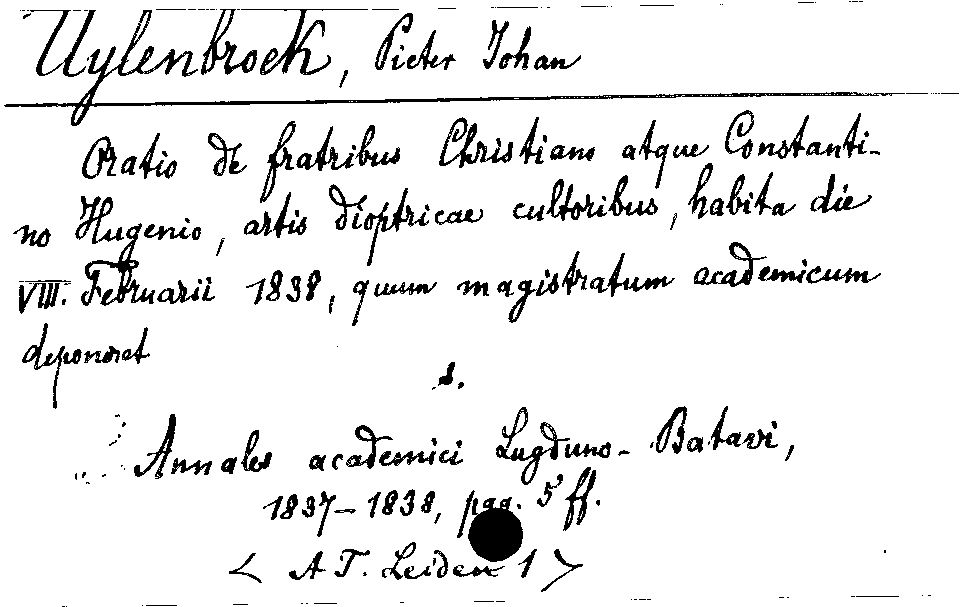 Uylenbroek, Pieter Johan
Oratio de fratribus Christiano atque Constanti-
no Hugenio, artis dioptricae cultoribus, habita die
VIII. Februarii 1838, quum magistratum academicum
deponeret
s.
Annales academici Lugduno-Batavi,
1837-1838, pag. 5 ff.
< A T. Leiden 1 >